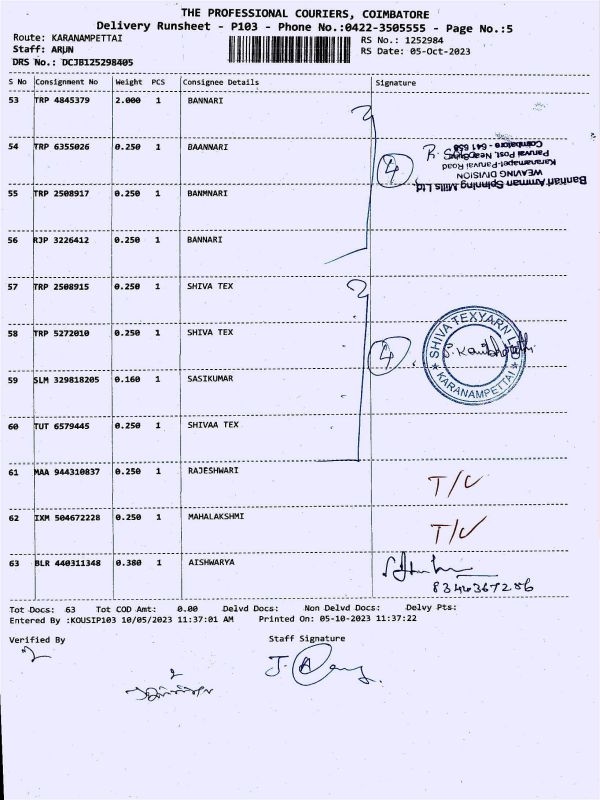 THE PROFESSIONAL COURIERS, COIMBATORE
Delivery Runsheet - P103 - Phone No.:0422-3505555 - Page No.:5
Route: KARANAMPETTAI RS No.: 1252984
Staff: ARUN RS Date: 05-Oct-2023
DRS No.: DCJB125298405
S No Consignment No Weight PCS Consignee Details Signature
53 TRP 4845379 2.000 1 BANNARI
54 TRP 6355026 0.250 1 BAANNARI
4
Bannari Amman Spinning Mills Ltd.
WEAVING DIVISION
Karanampet-Paruvai Road
Paruvai Post, Near
Coimbatore - 641 658
55 TRP 2508917 0.250 1 BANMNARI
56 RJP 3226412 0.250 1 BANNARI
57 TRP 2508915 0.250 1 SHIVA TEX
58 TRP 5272010 0.250 1 SHIVA TEX
4
SHIVA TEXYARN LTD
KARANAMPETTAI
59 SLM 329818205 0.160 1 SASIKUMAR
60 TUT 6579445 0.250 1 SHIVAA TEX
61 MAA 944310837 0.250 1 RAJESHWARI T/C
62 IXM 504672228 0.250 1 MAHALAKSHMI T/C
63 BLR 440311348 0.380 1 AISHWARYA
Tot Docs: 63 Tot COD Amt: 0.00 Delvd Docs: Non Delvd Docs: Delvy Pts:
Entered By :KOUSIP103 10/05/2023 11:37:01 AM Printed On: 05-10-2023 11:37:22
Verified By Staff Signature